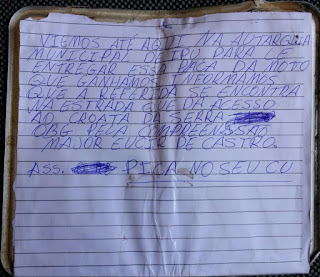 VIEMOS ATÉ AQUI NA AUTARQUIA
MUNICIPAL DE IPU PARA
ENTREGAR ESSA PLACA DA MOTO
QUE GANHAMOS. INFORMAMOS
QUE A REFERIDA SE ENCONTRA
NA ESTRADA QUE DA ACESSO
AO CROATA DA SERRA
OBG PELA COMPREENSSÃO
MAJOR EUCIR DE CASTRO.
ASS. PICA NO SEU CU